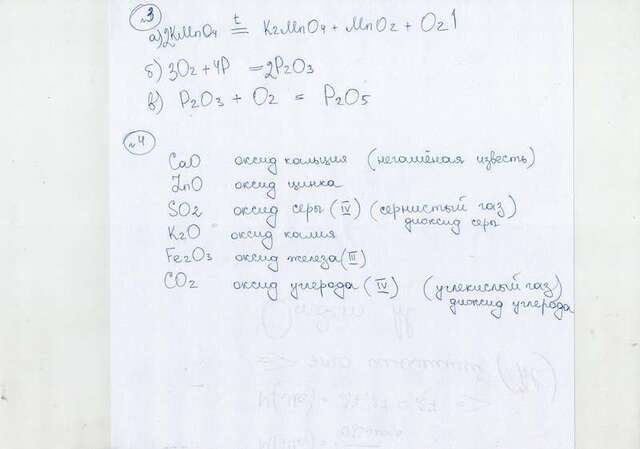 №3
а) 2KMnO4 t= K2MnO4 + MnO2 + O2↑
б) 3O2 + 4P = 2P2O3
в) P2O3 + O2 = P2O5
№4
CaO оксид кальция (негашёная известь)
ZnO оксид цинка
SO2 оксид серы (IV) (сернистый газ)
диоксид серы
K2O оксид калия
Fe2O3 оксид железа (III)
CO2 оксид углерода (IV) (углекислый газ)
диоксид углерода